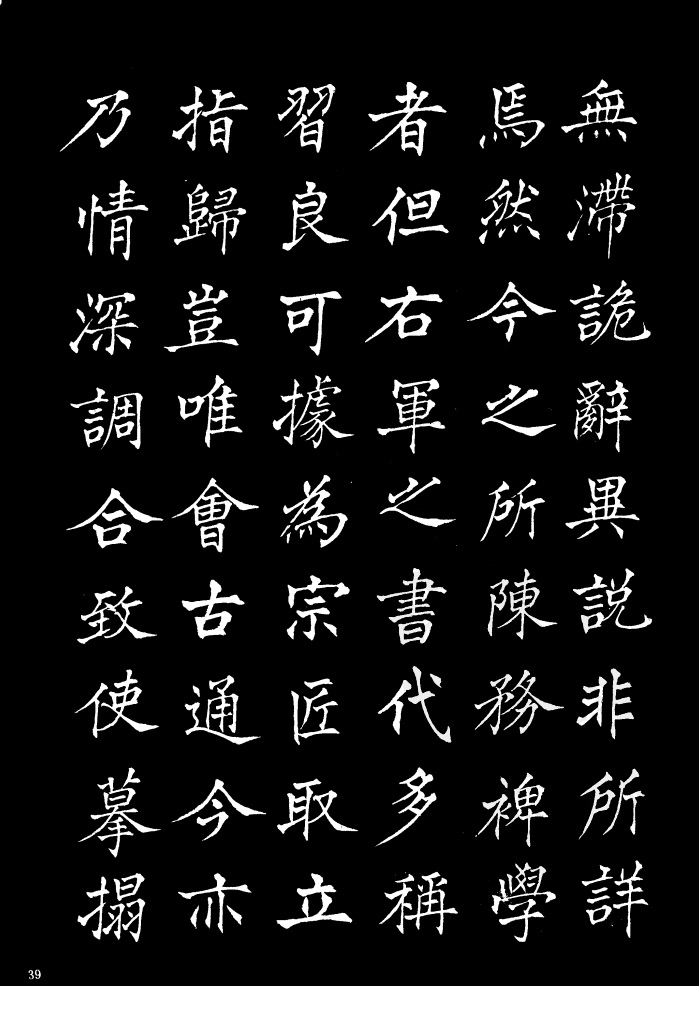 無滯詭辭異説非所詳
焉然今之所陳務裨學
者但右軍之書代多稱
習良可據為宗匠取立
指歸豈唯會古通今亦
乃情深調合致使摹搨
39